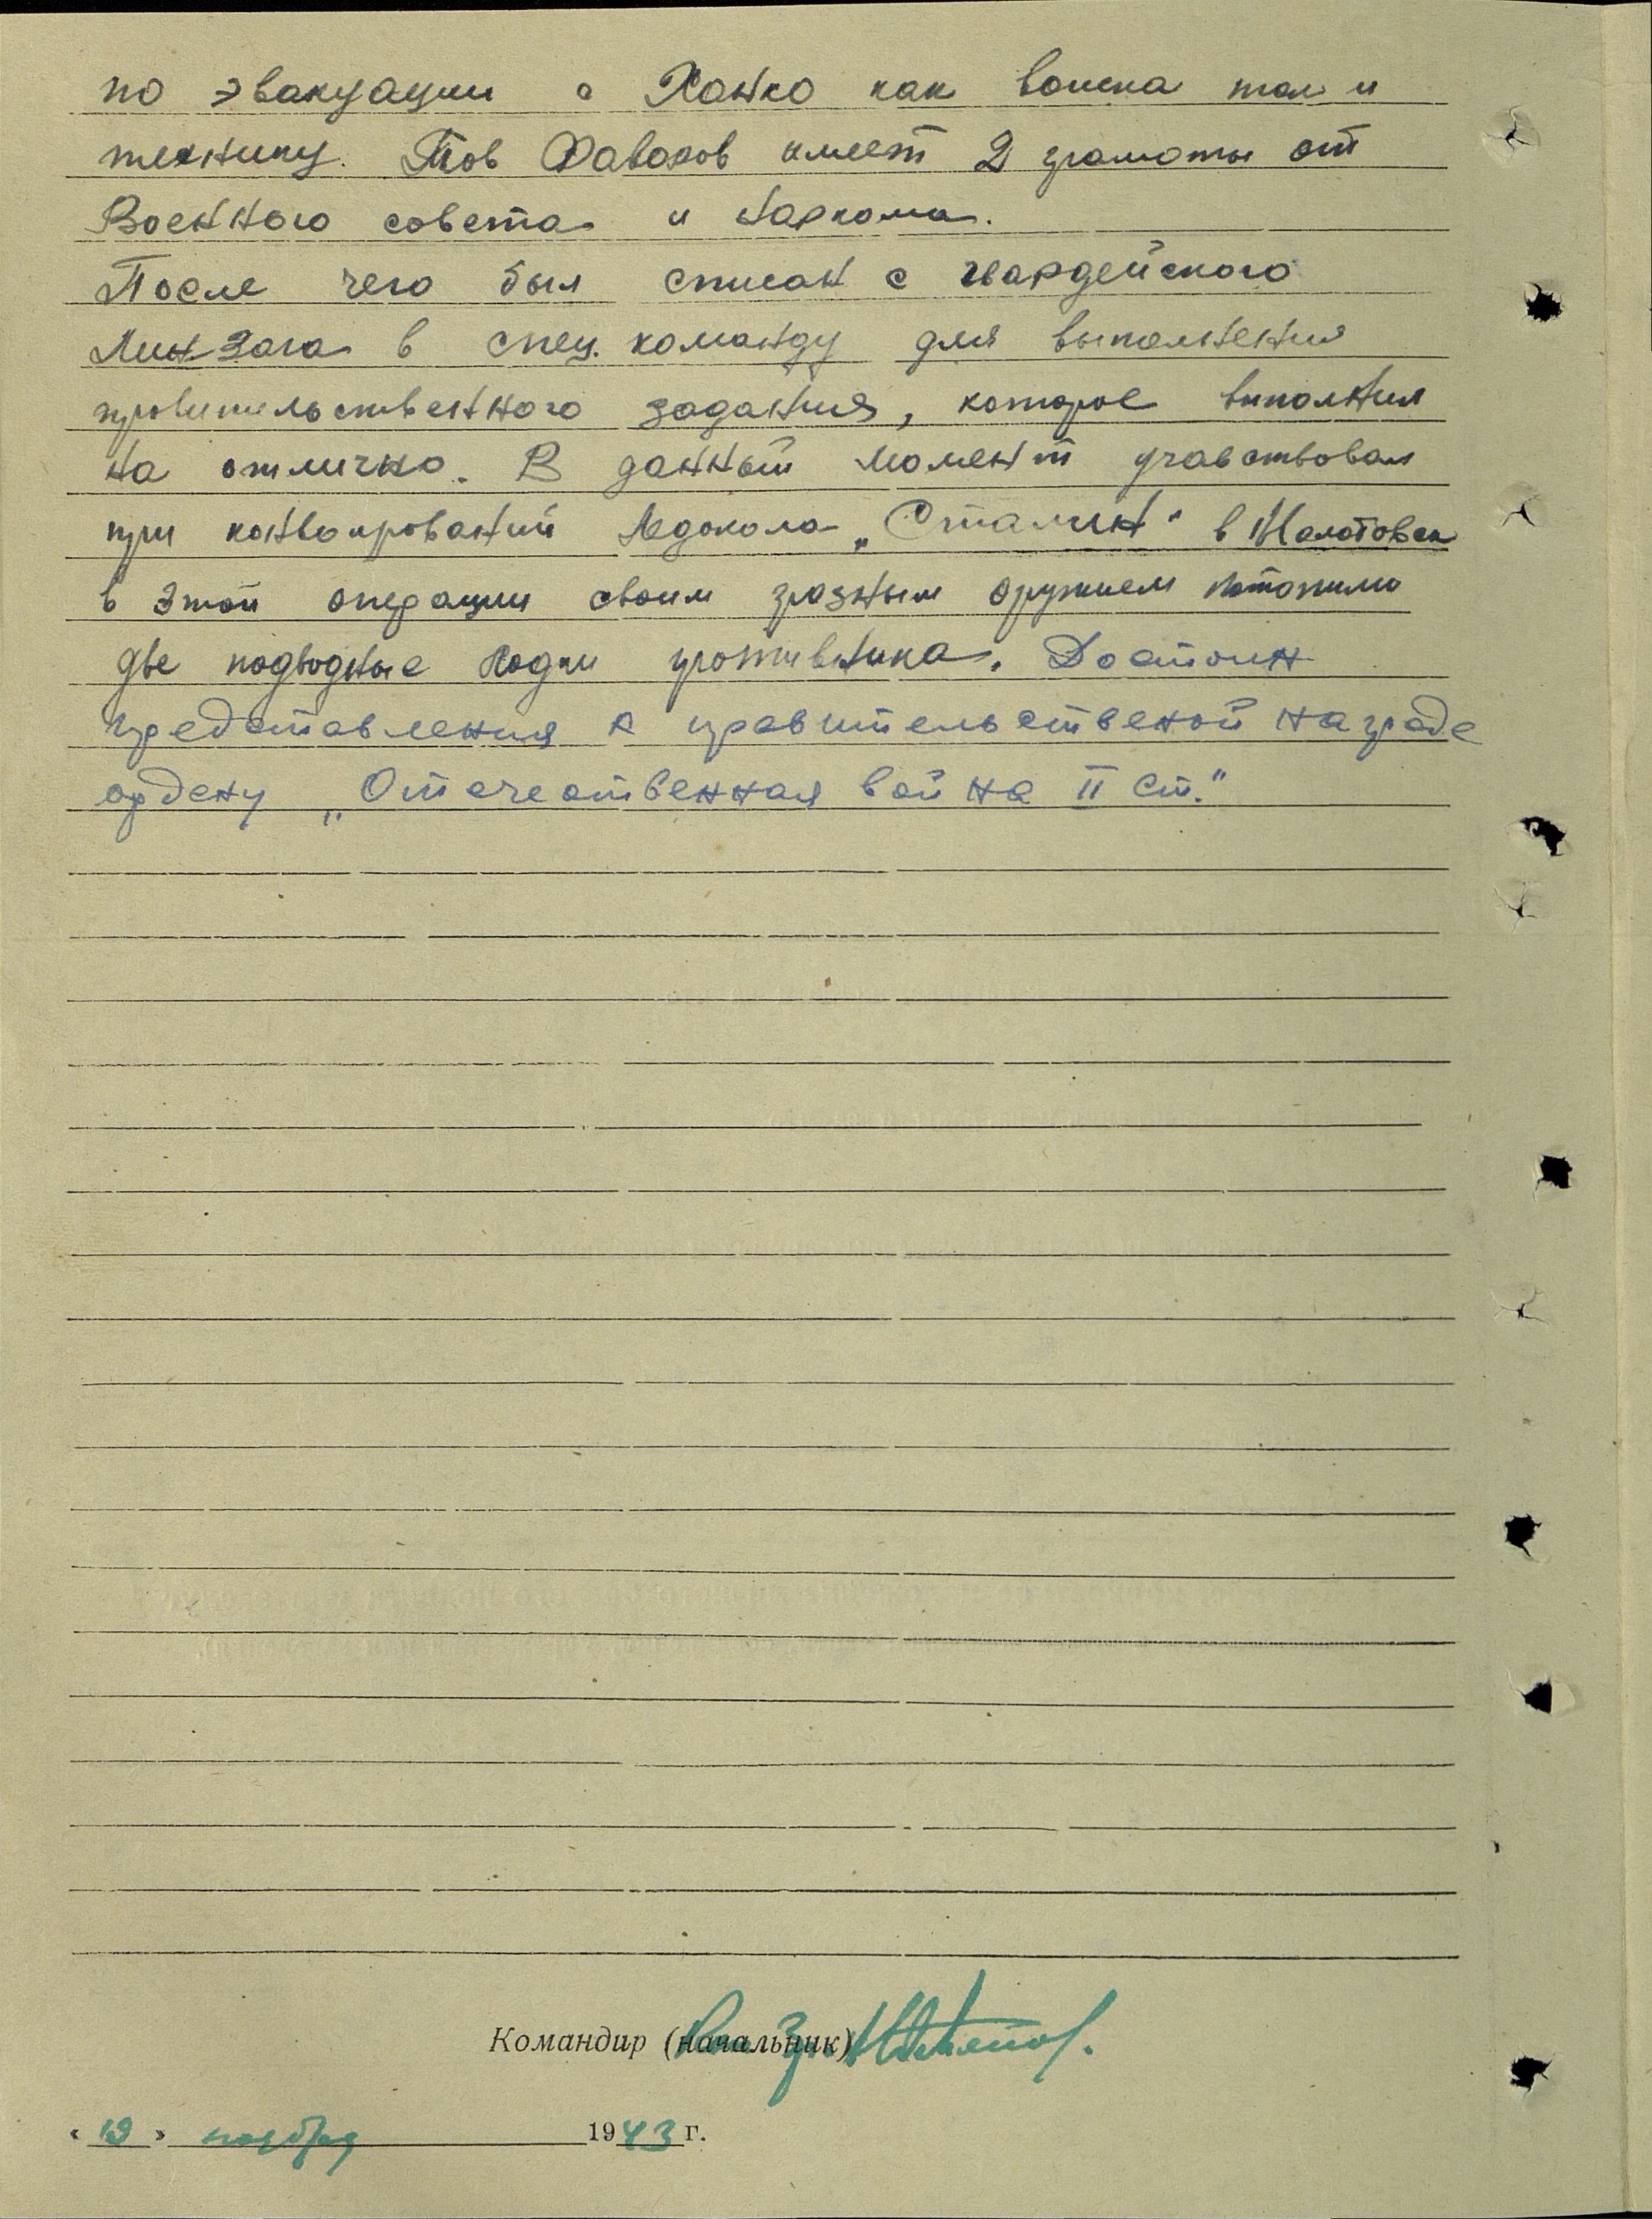 по эвакуации с Ханко как воиска так и
технику. Тов Фаворов имеет 2 грамоты от
Военного совета и Наркома.
После чего был списан с гвардейского
Минзага в спец. команду для выполнения
правительственного задания, которое выполнил
на отлично. В данный момент учавствовал
при конвоировании Ледокола „Сталин" в Молотовск
в этой операции своим грозным оружием потопили
две подводные лодки противника. Достоин
представления к правительственой награде
ордену „Отечественная война II ст."
Командир (начальник)
« 19 » ноября 1943 г.